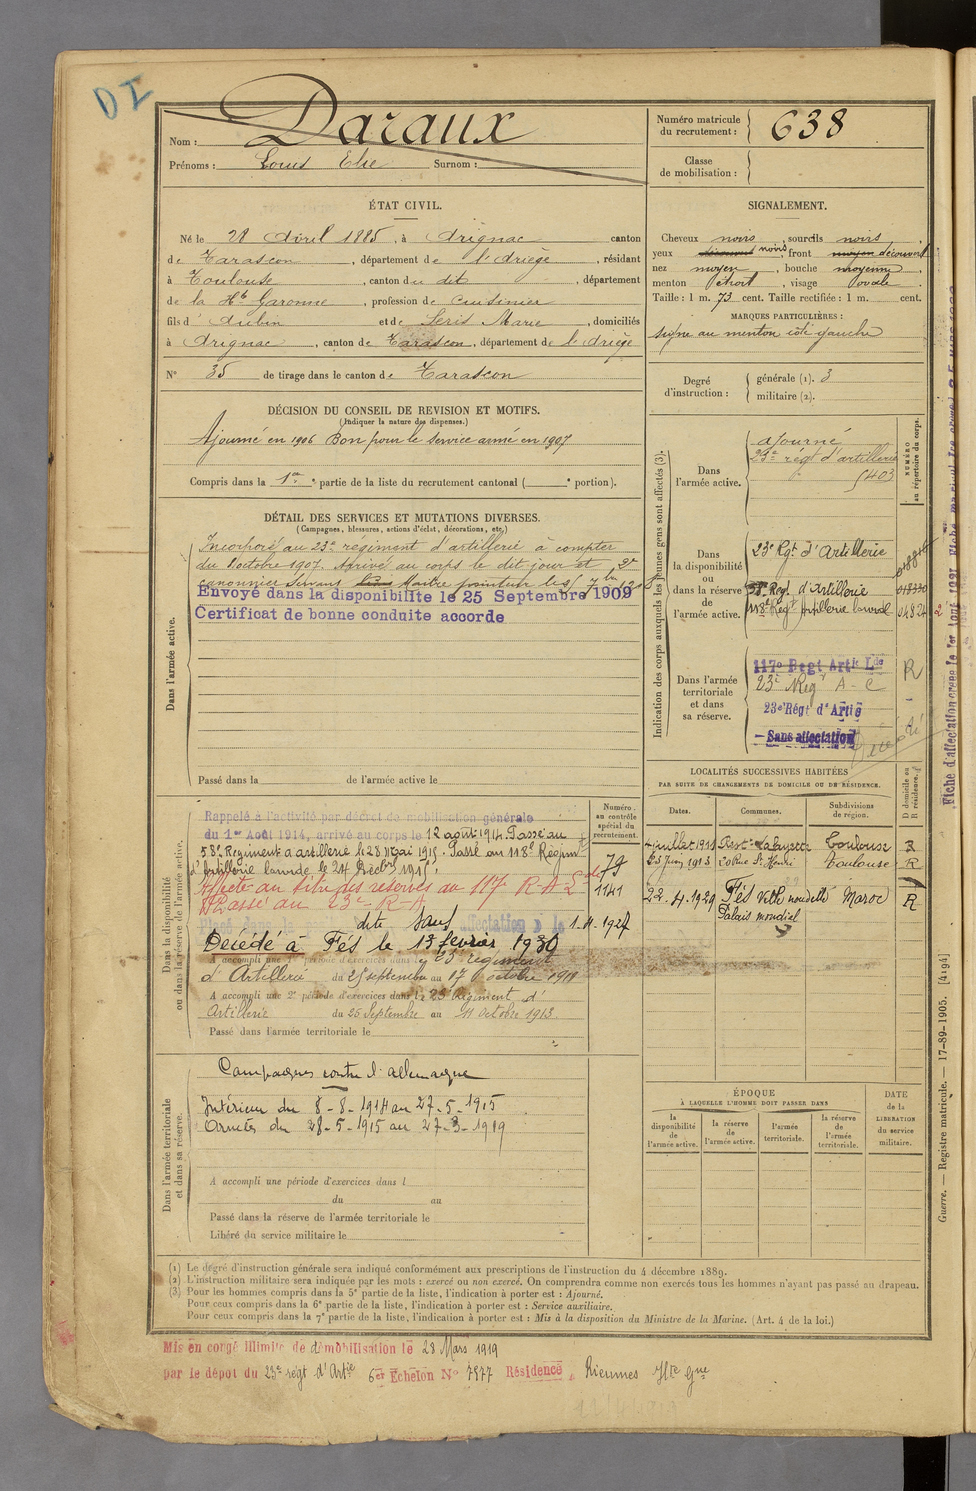 DI
Nom : Daraux
Prénoms : Louis Elie Surnom :
Numéro matricule du recrutement : 638
Classe de mobilisation :
ÉTAT CIVIL.
Né le 28 Avril 1885, à Arignac canton
de Tarascon, département de l'Ariège, résidant
à Toulouse, canton du dit, département
de la Hte Garonne, profession de Cuisinier
fils d'Aubin et de Seris Marie, domiciliés
à Arignac, canton de Tarascon, département de l'Ariège
N° 35 de tirage dans le canton de Tarascon
SIGNALEMENT.
Cheveux noirs, sourcils noirs
yeux noirs, front moyen découvert
nez moyen, bouche moyenne
menton étroit, visage ovale
Taille : 1 m. 73 cent. Taille rectifiée : 1 m. cent.
MARQUES PARTICULIÈRES :
signe au menton côté gauche
Degré d'instruction : générale (1). 3
militaire (2).
DÉCISION DU CONSEIL DE REVISION ET MOTIFS.
(Indiquer la nature des dispenses.)
Ajourné en 1906 Bon pour le service armé en 1907
Compris dans la 1re partie de la liste du recrutement cantonal ( e portion).
DÉTAIL DES SERVICES ET MUTATIONS DIVERSES.
(Campagnes, blessures, actions d'éclat, décorations, etc.)
Dans l'armée active.
Incorporé au 23e régiment d'artillerie à compter
du 8 octobre 1907. Arrivé au corps le dit jour et 2e
canonnier servant Maitre pointeur le
Envoyé dans la disponibilité le 25 Septembre 1909
Certificat de bonne conduite accordé
Passé dans la de l'armée active le
Indication des corps auxquels les jeunes gens sont affectés (3).
NUMÉRO au répertoire du corps.
Dans l'armée active.
ajourné
23e régt d'artillerie
5403
Dans la disponibilité ou dans la réserve de l'armée active.
23e Rgt d'Artillerie
58e Regt d'Artillerie
118e Regt artillerie lourde 04824
Dans l'armée territoriale et dans sa réserve.
117e Regt Artie Lde
23e Reg A-C
23e Régt d'Artie
Sans affectation
R
Fiche d'affectation
LOCALITÉS SUCCESSIVES HABITÉES
PAR SUITE DE CHANGEMENTS DE DOMICILE OU DE RÉSIDENCE.
Dates. Communes. Subdivisions de région. D domicile ou R résidence.
4 juillet 1911 Lafayette Toulouse R
25 Juin 1913 20 Rue St Henri Toulouse R
22.4.1929 Fés Ville nouvelle Maroc R
Palais mondial
Dans la disponibilité ou dans la réserve de l'armée active.
Numéro au contrôle spécial du recrutement.
79
1141
Rappelé à l'activité par décret de mobilisation générale
du 1er Août 1914, arrivé au corps le 12 août 1914. Passé au
58e Regiment d'artillerie le 28 Mai 1915. Passé au 118e Régiment
d'artillerie lourde le 24 Décbre 1915.
Affecté au titre des reserves au 117 R-A-L
Passé au 23e R-A
Placé dans la dite sans affectation le 1-4-1927
Décédé à Fés le 13 fevrier 1930
A accompli une 1e période d'exercices dans le 23 régiment
d'Artillerie du 25 septembre au 17 octobre 1911
A accompli une 2e période d'exercices dans le 23 Régiment d'
Artillerie du 25 Septembre au 11 Octobre 1913
Passé dans l'armée territoriale le
Dans l'armée territoriale et dans sa réserve.
Campagnes contre l'allemagne
Intérieur du 8-8-1914 au 27-5-1915
Armées du 28-5-1915 au 27-3-1919
A accompli une période d'exercices dans l
du au
Passé dans la réserve de l'armée territoriale le
Libéré du service militaire le
ÉPOQUE
À LAQUELLE L'HOMME DOIT PASSER DANS
la disponibilité de l'armée active.
la réserve de l'armée active.
l'armée territoriale.
la réserve de l'armée territoriale.
DATE de la LIBÉRATION du service militaire.
Guerre. — Registre matricule. — 17-89-1905. [4194]
(1) Le degré d'instruction générale sera indiqué conformément aux prescriptions de l'instruction du 4 décembre 1889.
(2) L'instruction militaire sera indiquée par les mots : exercé ou non exercé. On comprendra comme non exercés tous les hommes n'ayant pas passé au drapeau.
(3) Pour les hommes compris dans la 5e partie de la liste, l'indication à porter est : Ajourné.
Pour ceux compris dans la 6e partie de la liste, l'indication à porter est : Service auxiliaire.
Pour ceux compris dans la 7e partie de la liste, l'indication à porter est : Mis à la disposition du Ministre de la Marine. (Art. 4 de la loi.)
Mis en congé illimité de démobilisation le 28 Mars 1919
par le dépot du 23e régt d'Artie 6er Échelon N° 7877 Résidence à Rieumes Hte Gne